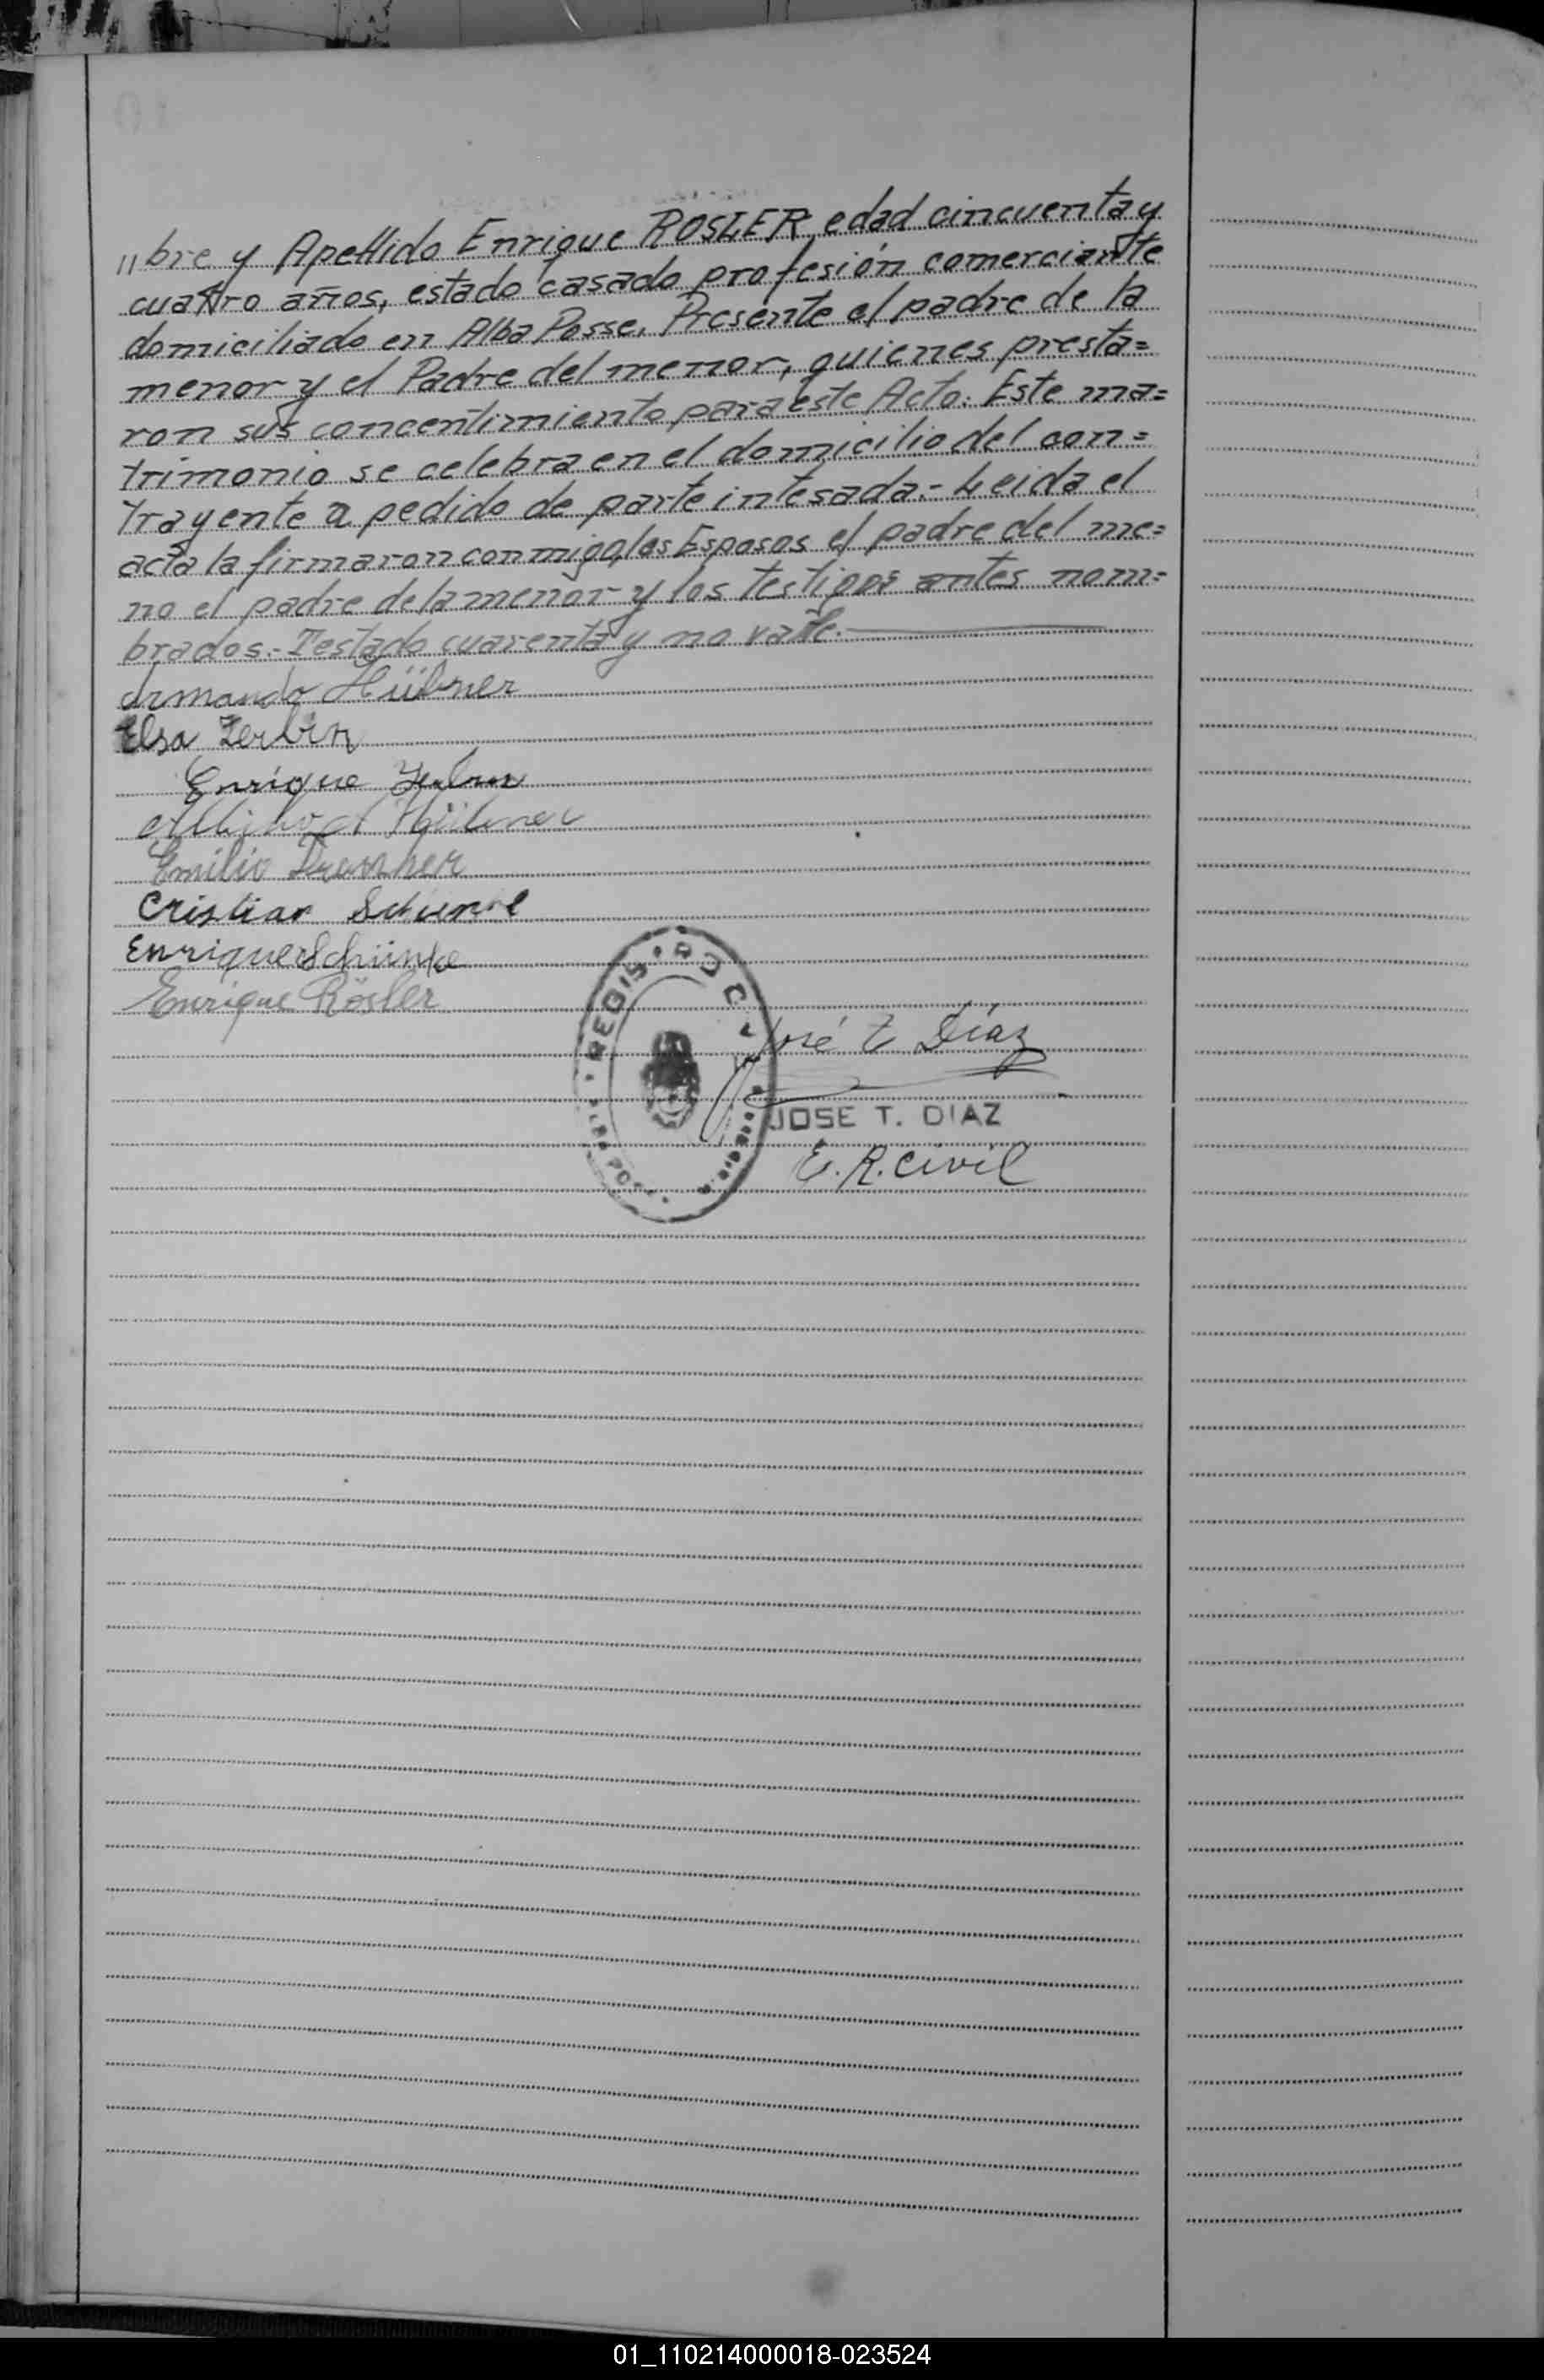 " bre y Apellido Enrique ROSLER, edad cincuenta y
cuatro años, estado casado profesión comerciante
domiciliado en Alba Posse. Presente el padre de la
menor y el Padre del menor, quienes presta=
ron sus concentimiento para este Acto. Este ma=
trimonio se celebra en el domicilio del con=
trayente a pedido de parte intesada.- Leida el
acta la firmaron conmigo, los Esposos el padre del me=
no el padre de la menor y los testigos antes nom=
brados.- Testado cuarenta y no valle.
Armando Hübner
Elsa Zerbin
Enrique
Hübner
Emilio
Cristian
Enrique Schünke
Enrique Rösler
REGIS
José T Diaz
JOSE T. DIAZ
E. R. Civil
01_110214000018-023524